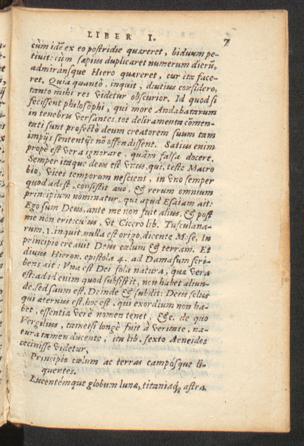 LIBER I. 7
cùm idē ex eo postridie quæreret, biduum pe-
tiuit: cùm sæpius duplicaret numerum dierū,
admiransque Hiero quæreret, cur ita face-
ret, Quia quantò, inquit, diutius considero,
tanto mihi res videtur obscurior. Id quod si
fecissent philosophi, qui more Andabatarum
in tenebris versantes, tot deliramenta cōmen-
tati sunt profectò deum creatorem suum tam
impijs sententijs nō offendissent. Satius enim
prope est vera ignorare, quàm falsa docere.
Semper itaque deus est vnus, qui, teste Macro
bio, vices temporum nesciens, in vno semper
quod adest consistit æuo, & rerum omnium
principium nominatur. qui apud Esaiam ait:
Ego sum Deus, ante me non fuit alius, & post
me non erit: cuius, vt Cicero lib. Tusculana-
rum. 1. inquit nulla est origo, dicente Mose, In
principio creauit Deus cælum & terram. Et
diuus Hieron. epistola 4. ad Damasum scri-
bens ait: Vna est Dei sola natura, quæ vera
est: ad id enim quod subsistit, non habet aliun-
de, sed suum est. Deinde & subdit: Deus solus
qui æternus est, hoc est, qui exordium non ha-
bet, essentiæ verè nomen tenet, &c. de quo
Vergilius, tametsi longè fuit à veritate, na-
tura tamen ducente, in lib. sexto Aeneidos
cecinisse videtur,
Principio cælum ac terras campósque li-
quentes,
Lucentemque globum lunæ, titaniaq; astra